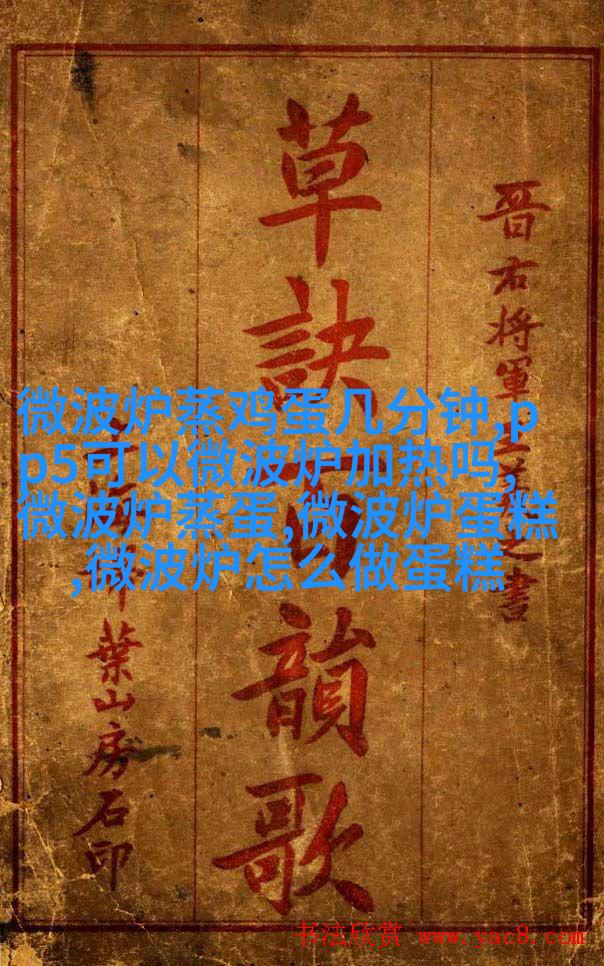 晋右將軍王羲之書
草訣百韻歌
葉山房石印
微波炉蒸鸡蛋几分钟,p
p5可以微波炉加热吗,
微波炉蒸蛋,微波炉蛋糕
,微波炉怎么做蛋糕
书法欣赏 www.yac8.com